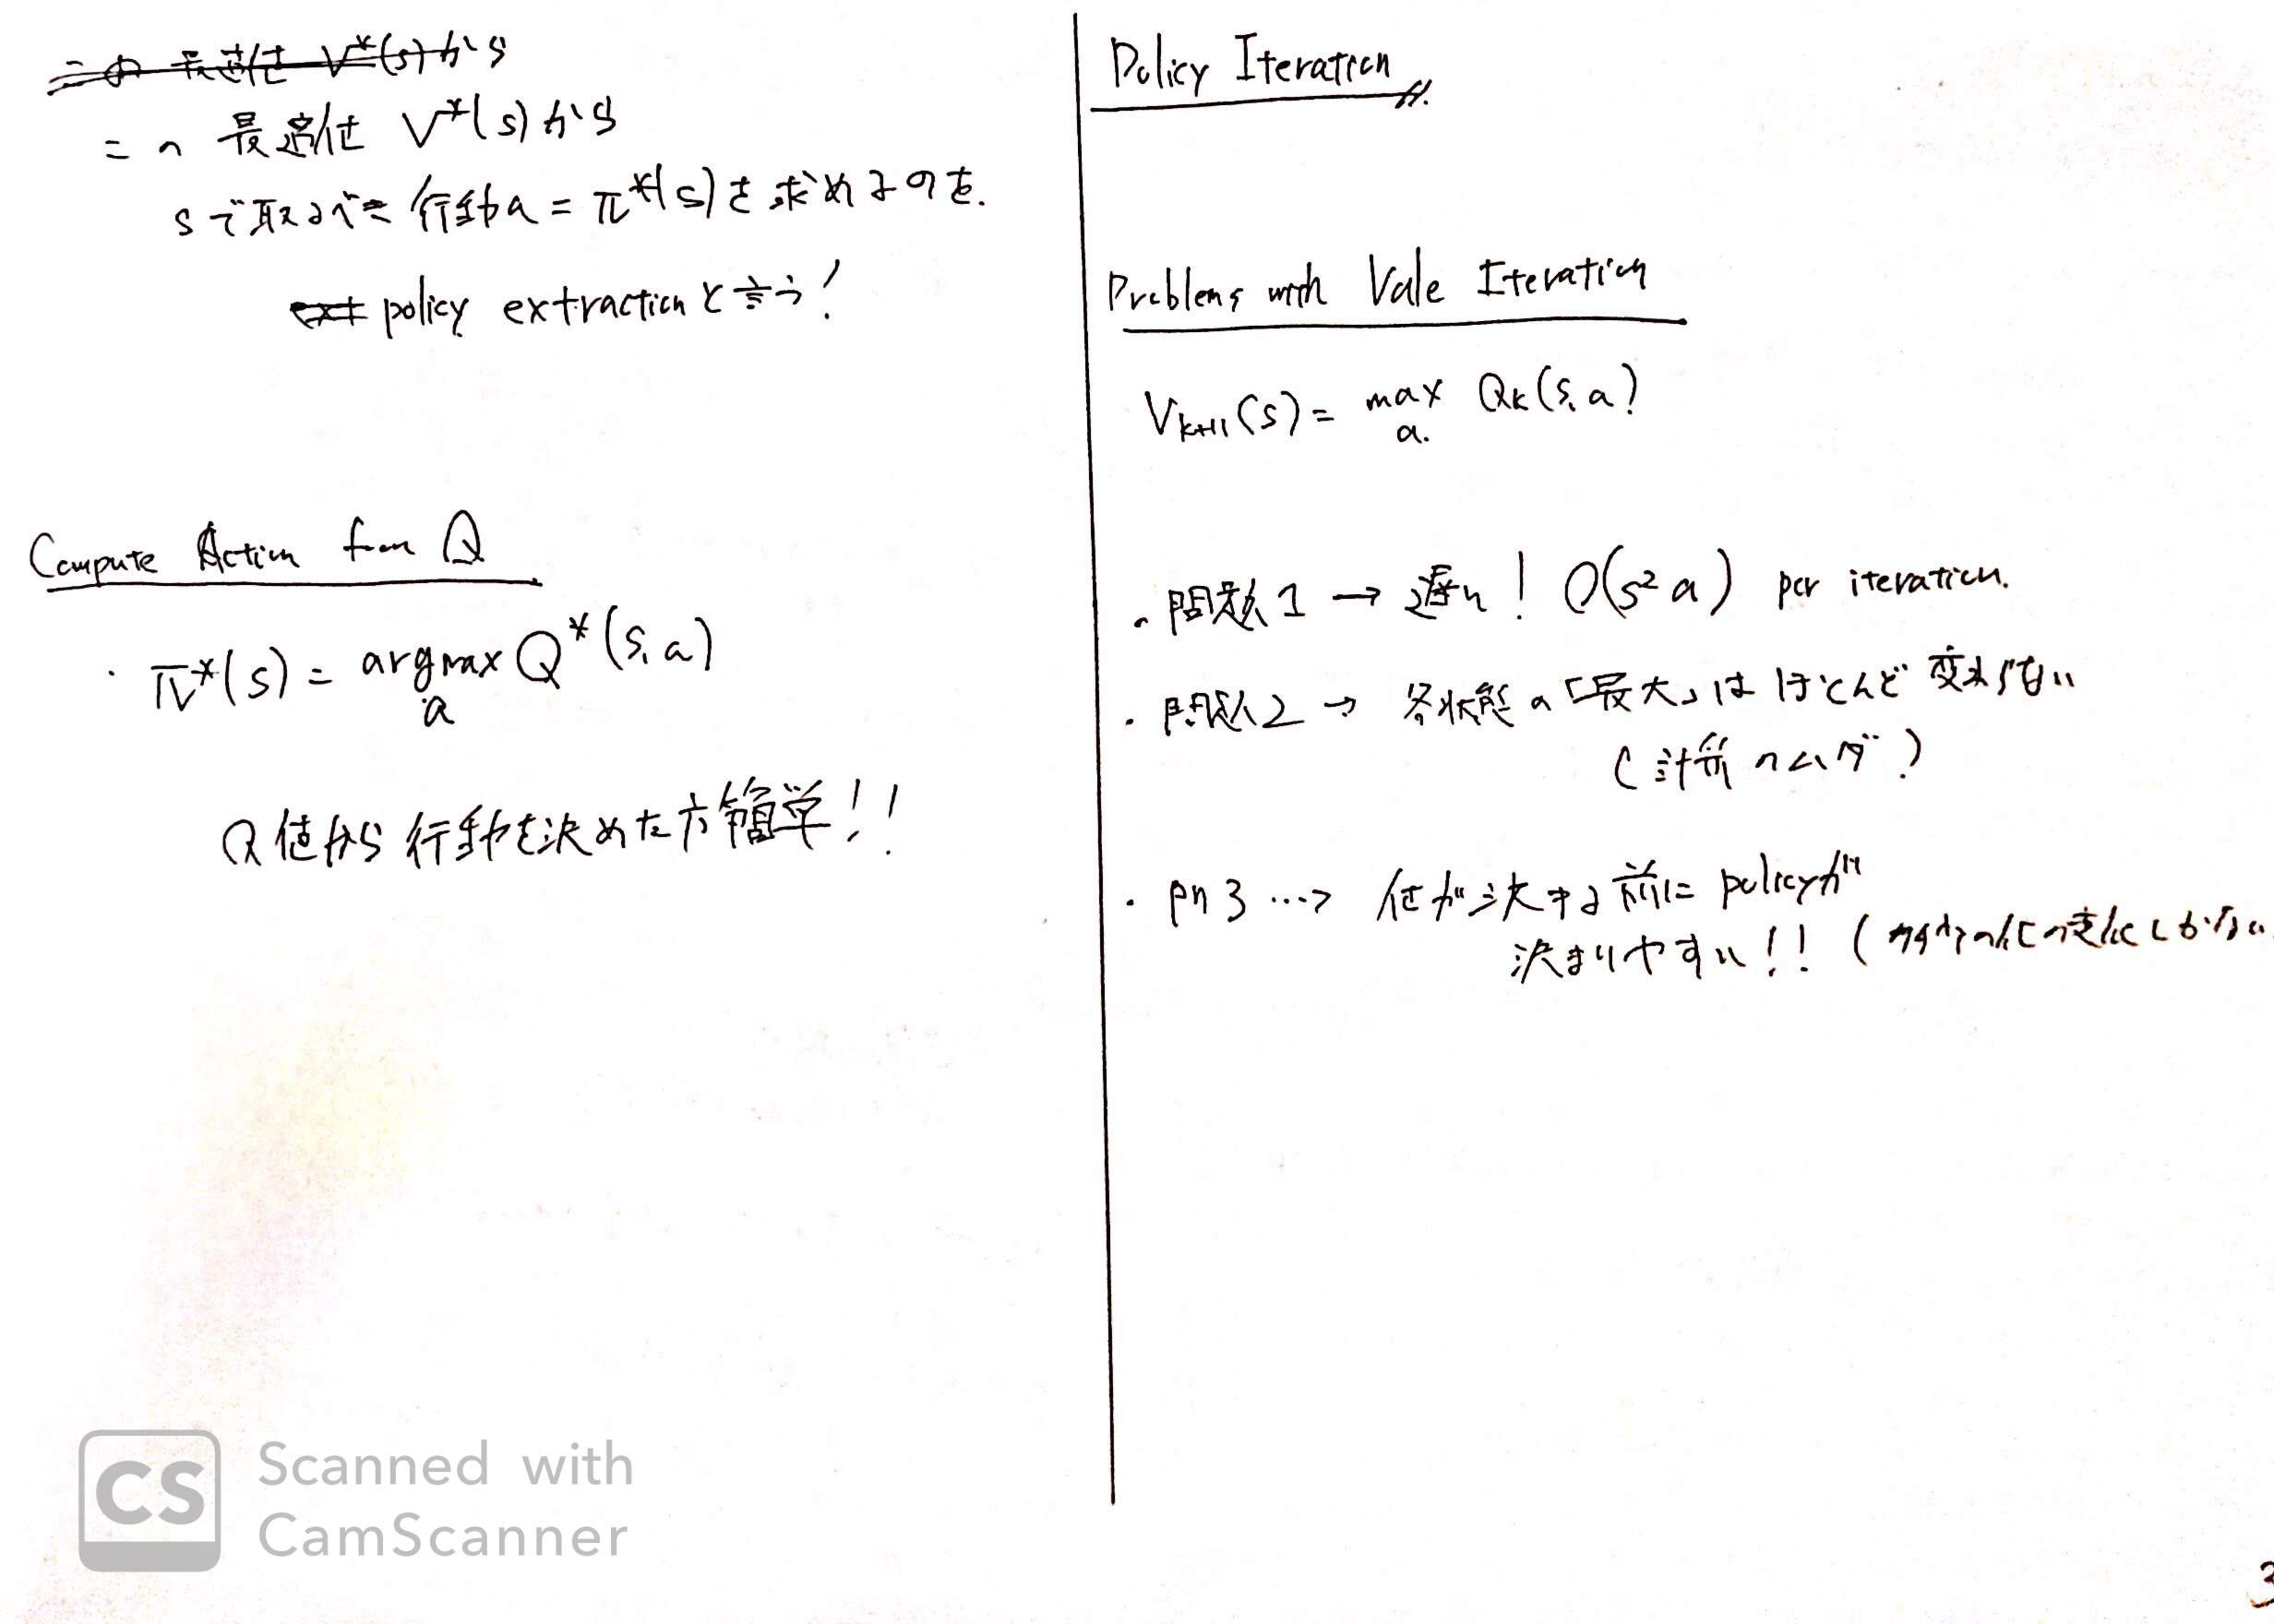 この最適値 V*(s)から
この 最適値 V*(s)から
sで取るべき行動a = π*(s)を求めるのを.
ext policy extractionと言う!
Compute Action from Q
・ π*(s) = argmax Q*(s, a)
a
Q値から行動を決めた方簡単!!
Policy Iteration
Problems with Vale Iteration
Vk+1(s) = max Qk(s, a)
a.
・問題1 → 遅い! O(s²a) per iteration.
・問題2 → 各状態の「最大」はほとんど変わらない
(計算のムダ)
・ 3 …→ 値が決まる前にpolicyが
決まりやすい!! (
3
Scanned with
CamScanner